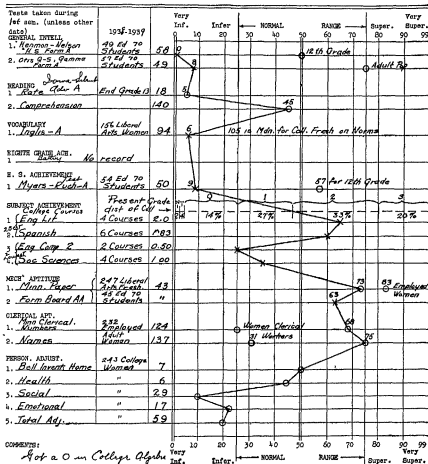 Tests taken during
1st sem. (unless other
date) 1938-1939
Very Inf. Infer. NORMAL RANGE Super. Very Super.
0 10 20 30 40 50 60 70 80 90 99
GENERAL INTELL
1. Henmon-Nelson H.S. Form A 49 Ed 70 Students 58 0 12th Grade
2. Otis Q-S, Gamma Form A 57 Ed 70 Students 49 8 Adult Pop
READING Iowa-Silent
1. Rate Adv A End Grade 13 18 5
2. Comprehension 140 45
VOCABULARY
1. Inglis-A 156 Liberal Arts Women 94 6 105 is Mdn. for Coll. Fresh on Norms
EIGHTH GRADE ACH.
1. Battery No record
H. S. ACHIEVEMENT
1 Myers-Ruch-A 54 Ed 70 Students 50 9 57 for 12th Grade
SUBJECT ACHIEVEMENT Present Grade
College Courses dist of Coll → 0 14% 1 27% 2 33% 3 20%
1. Eng Lit. 4 Courses 2.0
2. Spanish 6 Courses 1.83
3. Eng Comp. 2 2 Courses 0.50
Soc Sciences 4 Courses 1.00
MECH' APTITUDE
1. Minn. Paper 247 Liberal Arts Fresh. 43 73 83 Employed Women
2. Form Board AA 45 Ed 70 Students " 63
CLERICAL APT.
Minn Clerical.
1. Numbers 232 Employed 124 Women Clerical 68
2. Names Adult Women 137 31 Workers 75
PERSON. ADJUST.
1. Bell Invent Home 243 College Women 7
2. Health " 6
3. Social " 29
4. Emotional " 17
5. Total Adj. " 59
0 10 20 30 40 50 60 70 80 90 99
COMMENTS:
Got a 0 in College Algebra
Very Inf. Infer. NORMAL RANGE Super. Very Super.